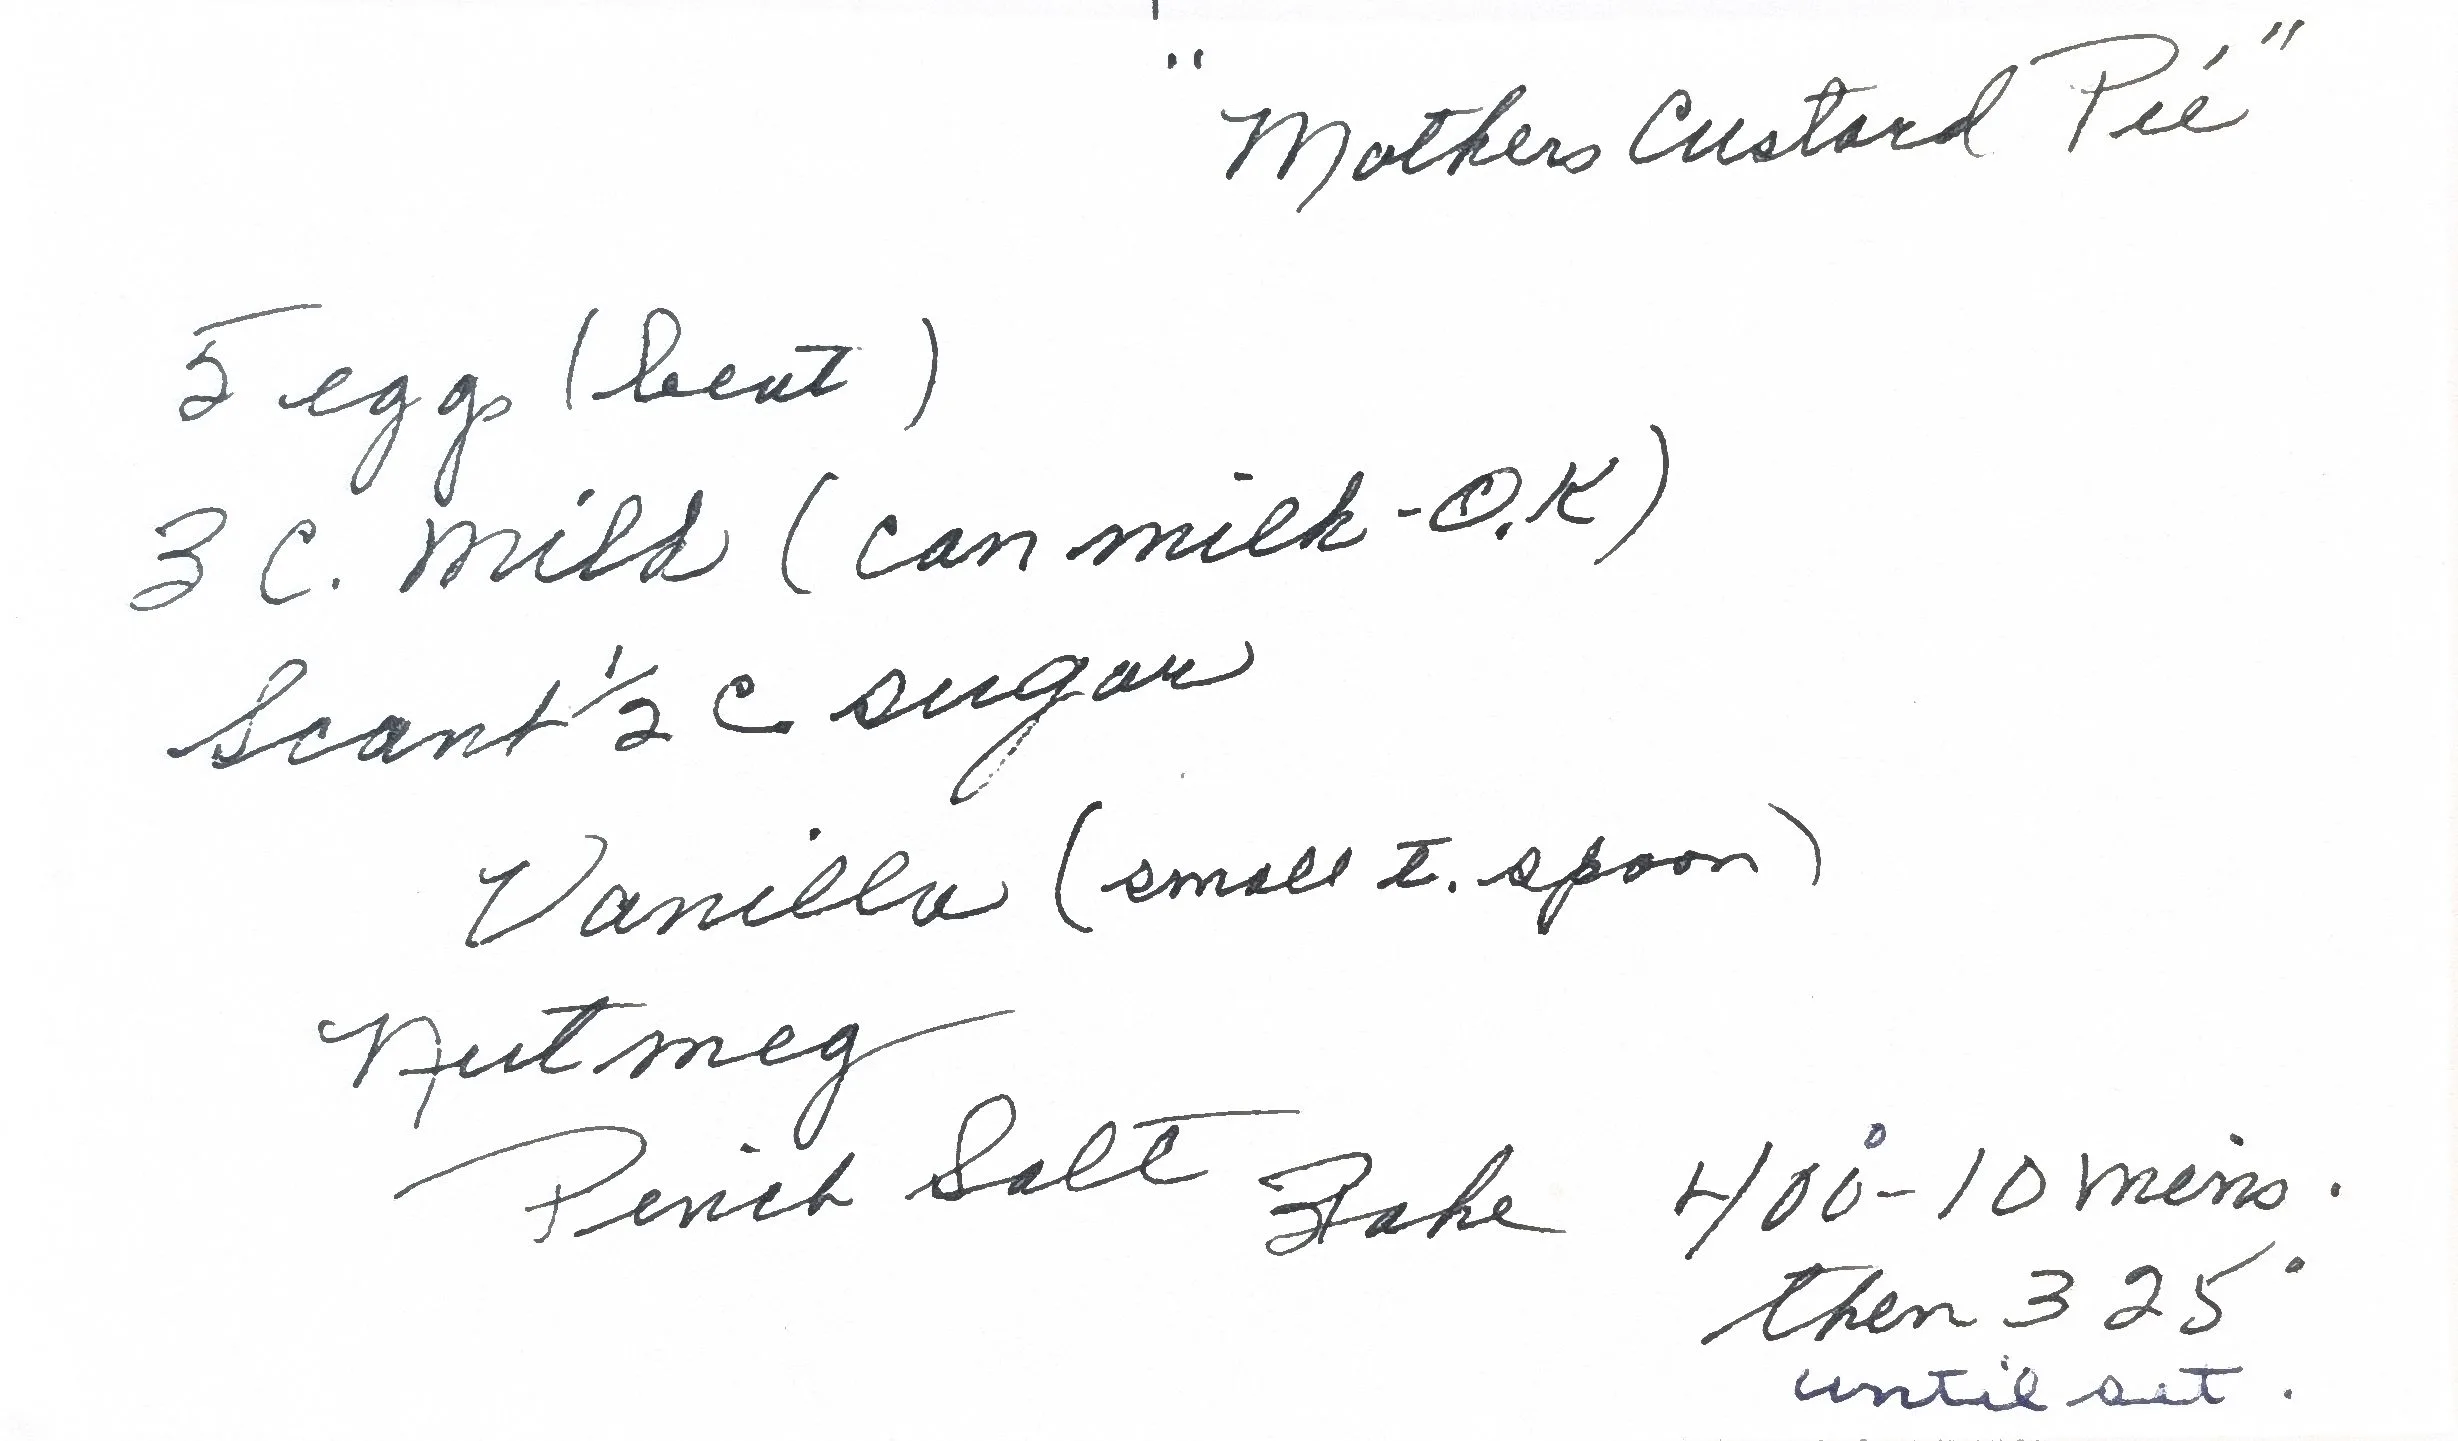 "Mothers Custard Pie"
5 eggs (beat)
3 C. Milk (can milk - O.K)
Scant 1/2 C sugar
Vanilla (small t. spoon)
Nutmeg
Pinch Salt
Bake 400° - 10 mins.
then 325°
until set.